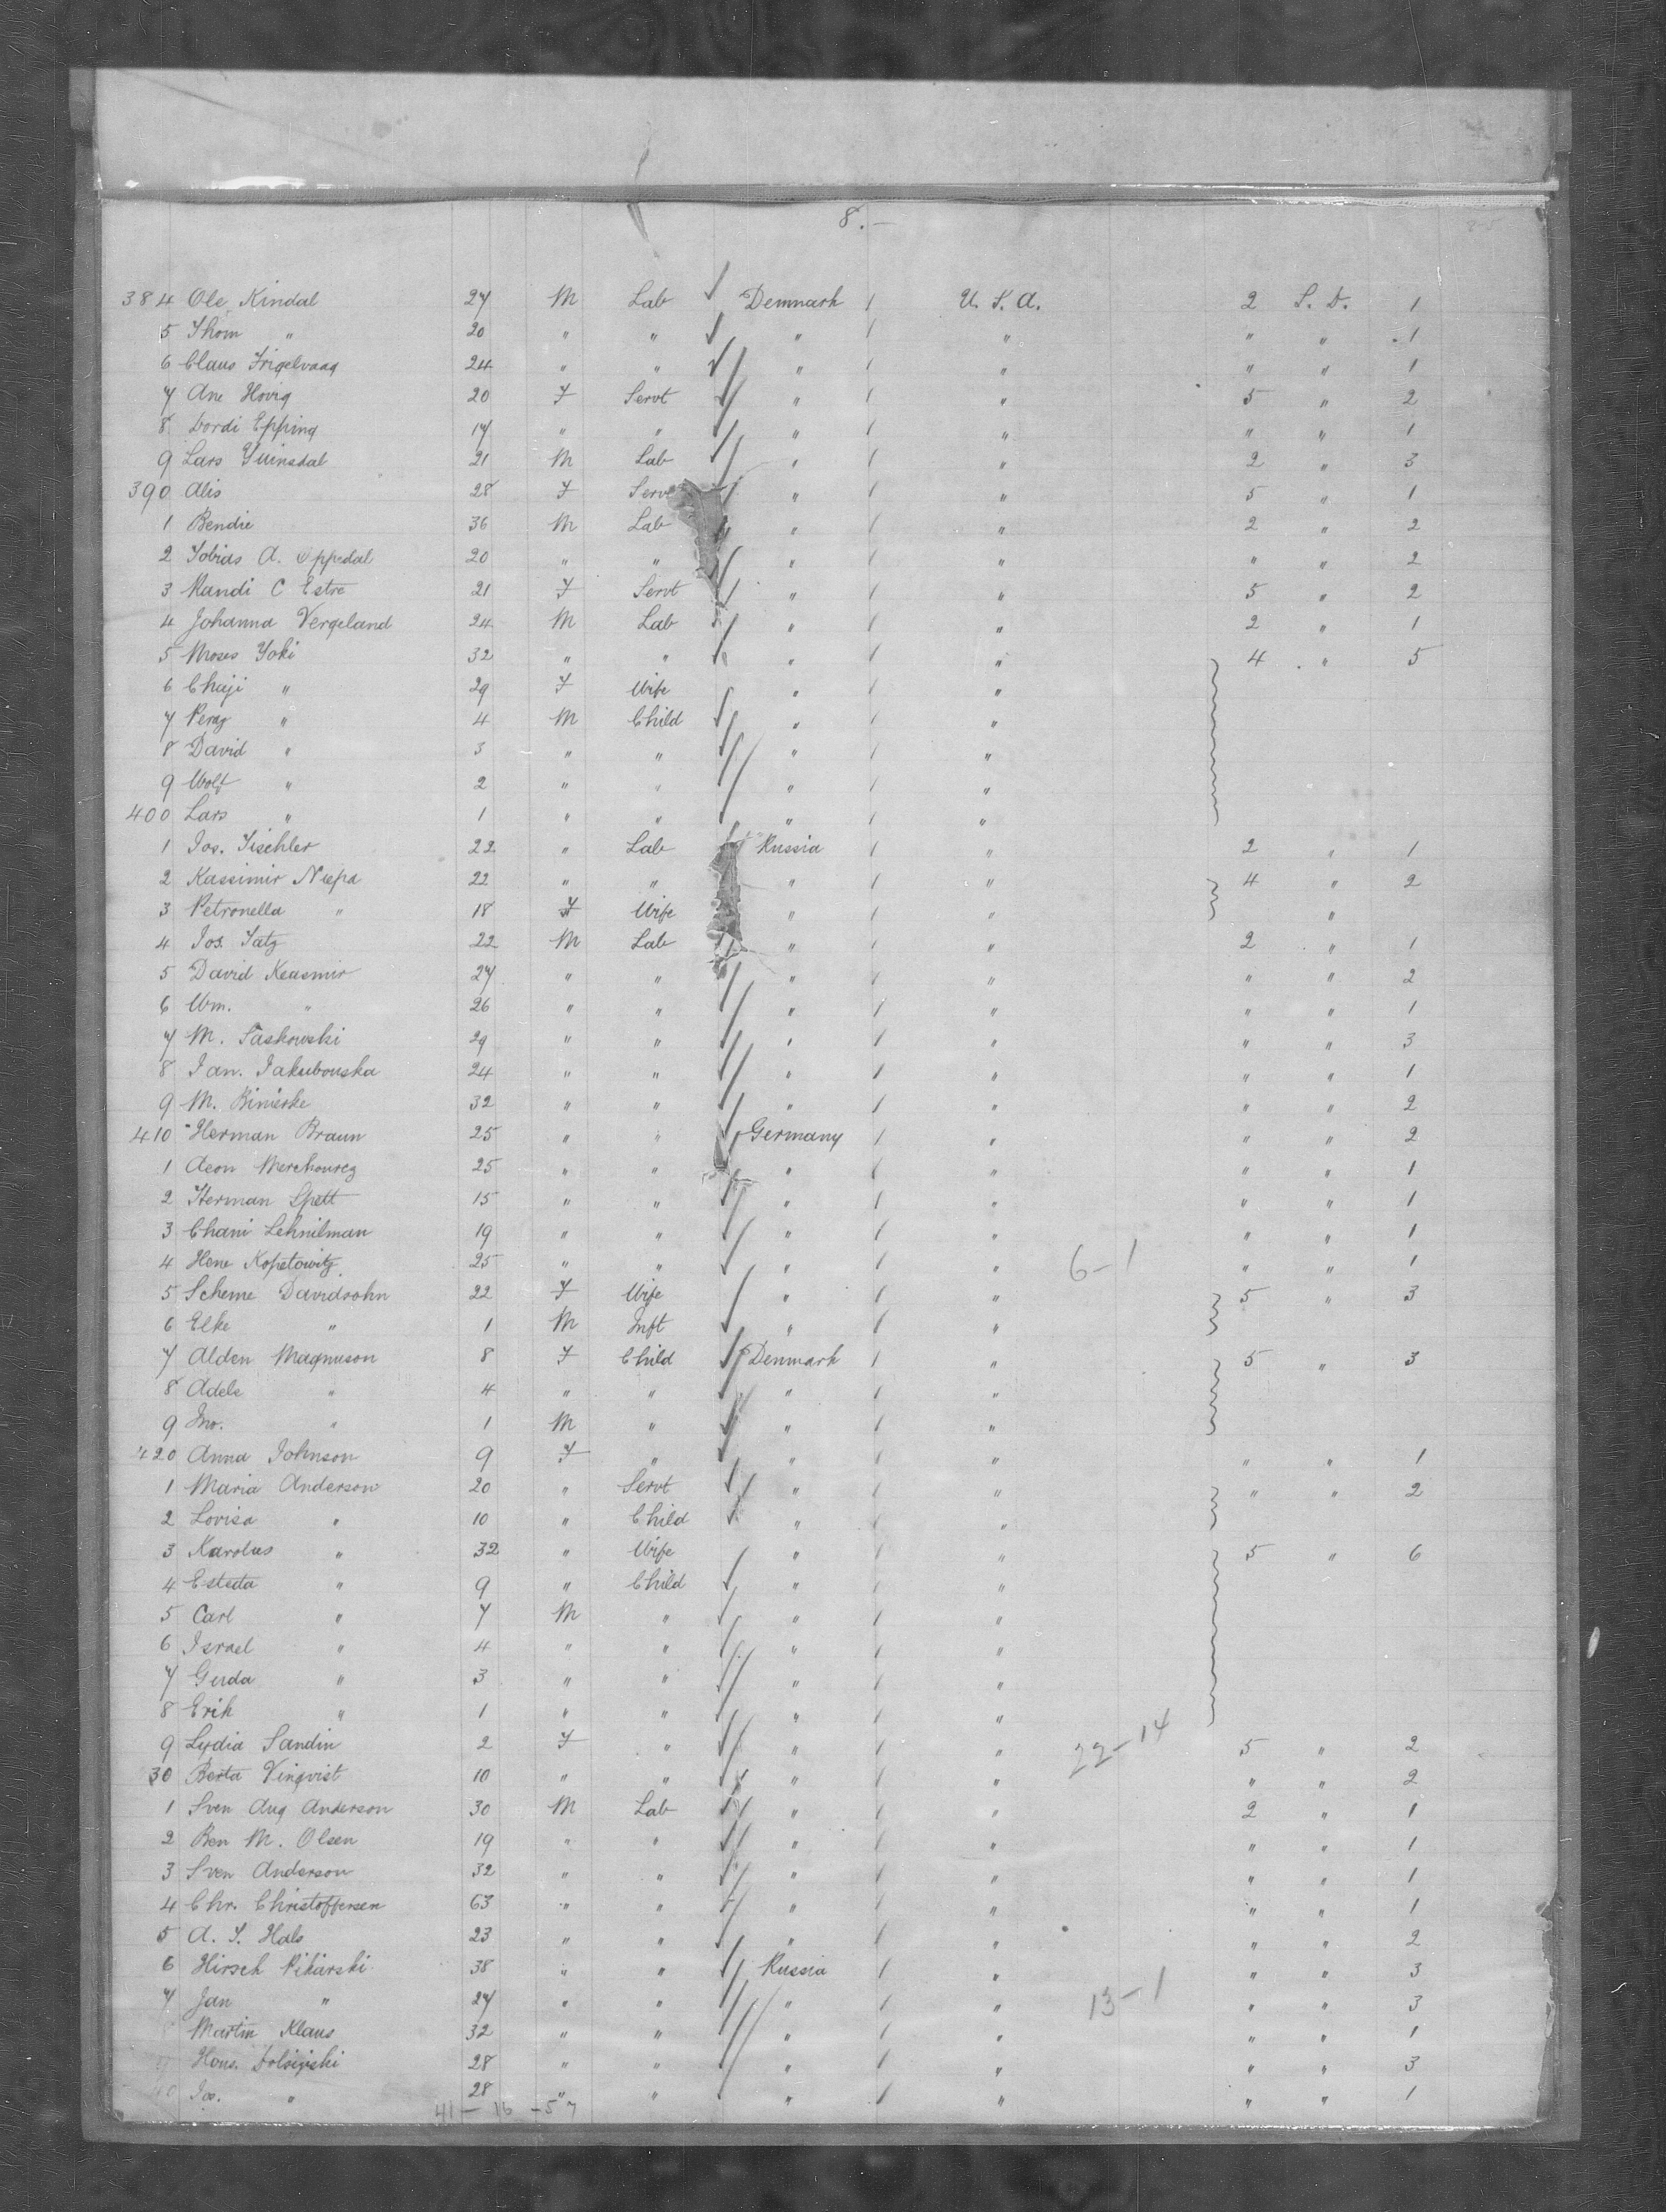 8.-
384 Ole Kindal 27 M Lab Denmark / U. S. A. 2 S. D. 1
5 Thom " 20 " " " / " " " 1
6 Claus 24 " " " / " " " 1
7 Ane Hovig 20 F Servt " / " 5 " 2
8 Dordi Epping 17 " " " / " " " 1
9 Lars 21 M Lab " / " 2 " 3
390 Alis 28 F Serv " / " 5 " 1
1 Bendie 36 M Lab " / " 2 " 2
2 Tobias A. Oppedal 20 " " " / " " " 2
3 Mandi C Estre 21 F Servt " / " 5 " 2
4 Johanna Vergeland 24 M Lab " / " 2 " 1
5 Moses Yoki 32 " " " / " 4 " 5
6 Chaji " 29 F Wife " / "
7 " 4 M Child " / "
8 David " 3 " " " / "
9 Wolf " 2 " " " / "
400 Lars " 1 " " " / "
1 Jos. Tischler 22 " Lab Russia / " 2 " 1
2 Kassimir Niepa 22 " " " / " 4 " 2
3 Petronella " 18 F Wife " / " "
4 Jos. Tatz 22 M Lab " / " 2 " 1
5 David Keasmir 27 " " " / " " " 2
6 Wm. " 26 " " " / " " " 1
7 M. Saskowski 29 " " " / " " " 3
8 Jan. Jakubouska 24 " " " / " " " 1
9 M. Binieske 32 " " " / " " " 2
410 Herman Braun 25 " " Germany / " " " 2
1 Aeon 25 " " " / " " " 1
2 Herman Spett 15 " " " / " " " 1
3 Chani Lehnilman 19 " " " / " " " 1
4 Hene Kopetowitz 25 " " " / " 6-1 " " 1
5 Scheme Davidsohn 22 F Wife " / " 5 " 3
6 Elke " 1 M Inft " / "
7 Alden Magnuson 8 F Child Denmark / " 5 " 3
8 Adele " 4 " " " / "
9 Jno. " 1 M " " / "
420 Anna Johnson 9 F " " / " " " 1
1 Maria Anderson 20 " Servt " / " " " 2
2 Lovisa " 10 " Child " / "
3 Karolus " 32 " Wife " / " 5 " 6
4 Esteda " 9 " Child " / "
5 Carl " 7 M " " / "
6 Israel " 4 " " " / "
7 Gerda " 3 " " " / "
8 Erik " 1 " " " / "
9 Lydia Sandin 2 F " " / " 22-14 5 " 2
30 Berta Vinqvist 10 " " " / " " " 2
1 Sven Aug Anderson 30 M Lab " / " 2 " 1
2 Ben M. Olsen 19 " " " / " " " 1
3 Sven Anderson 32 " " " / " " " 1
4 Chr. Christoffersen 63 " " " / " " " 1
5 A. T. Hals 23 " " " / " " " 2
6 Hirsch Pikarski 38 " " Russia / " " " 3
7 Jan " 27 " " " / " 13-1 " " 3
8 Martin Klaus 32 " " " / " " " 1
9 28 " " " / " " " 3
40 Jos. " 28 " " " / " " " 1
41-16-57